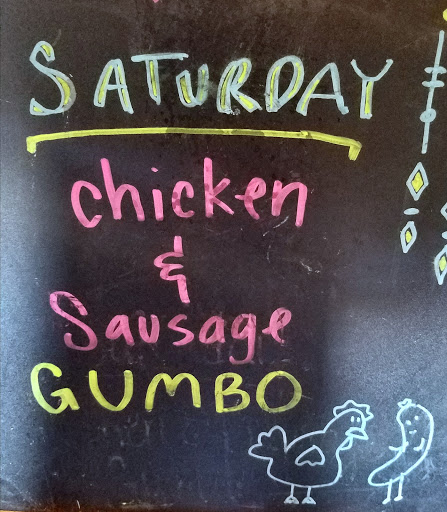 SATURDAY
chicken
&
Sausage
GUMBO